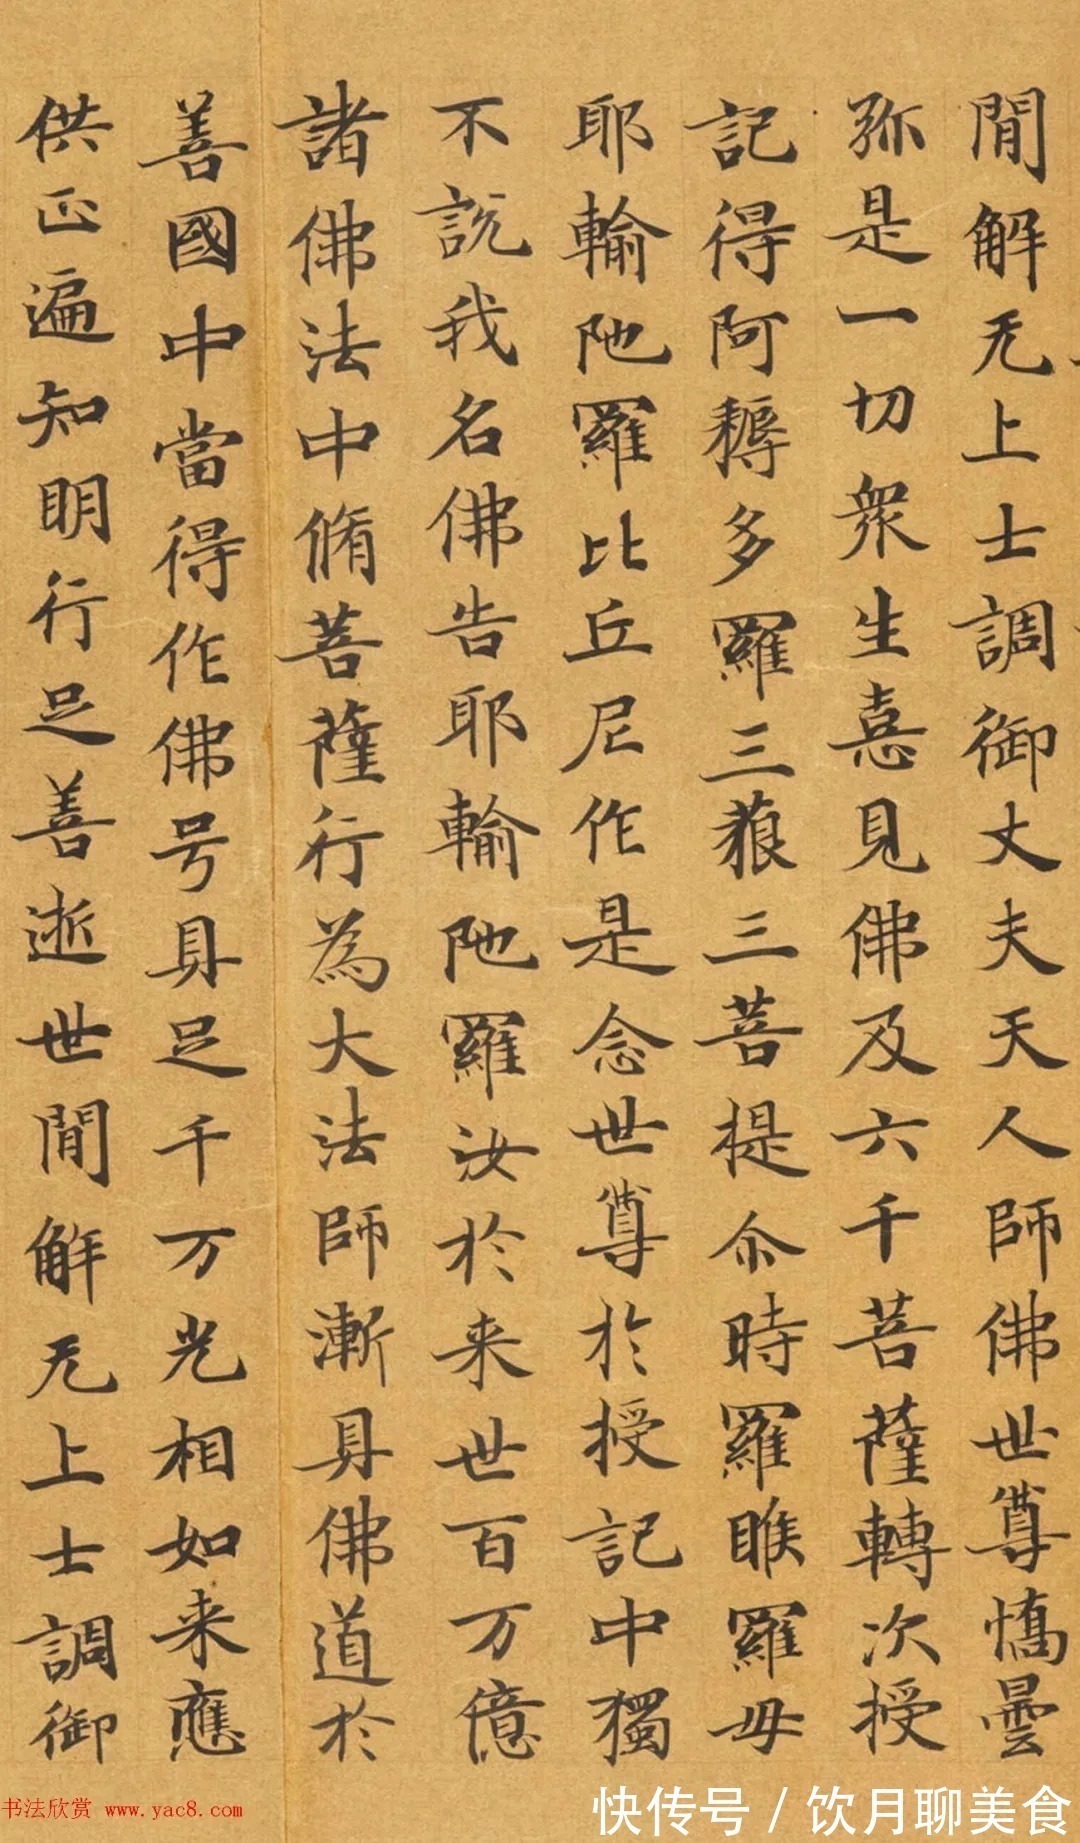 間解无上士調御丈夫天人師佛世尊憍曇
弥是一切衆生憙見佛及六千菩薩轉次授
記得阿耨多羅三藐三菩提尒時羅睺羅母
耶輸陁羅比丘尼作是念世尊於授記中獨
不說我名佛告耶輸陁羅汝於来世百万億
諸佛法中脩菩薩行為大法師漸具佛道於
善國中當得作佛号具足千万光相如来應
供正遍知明行足善逝世間解无上士調御
书法欣赏 www.yac8.com
快传号/饮月聊美食